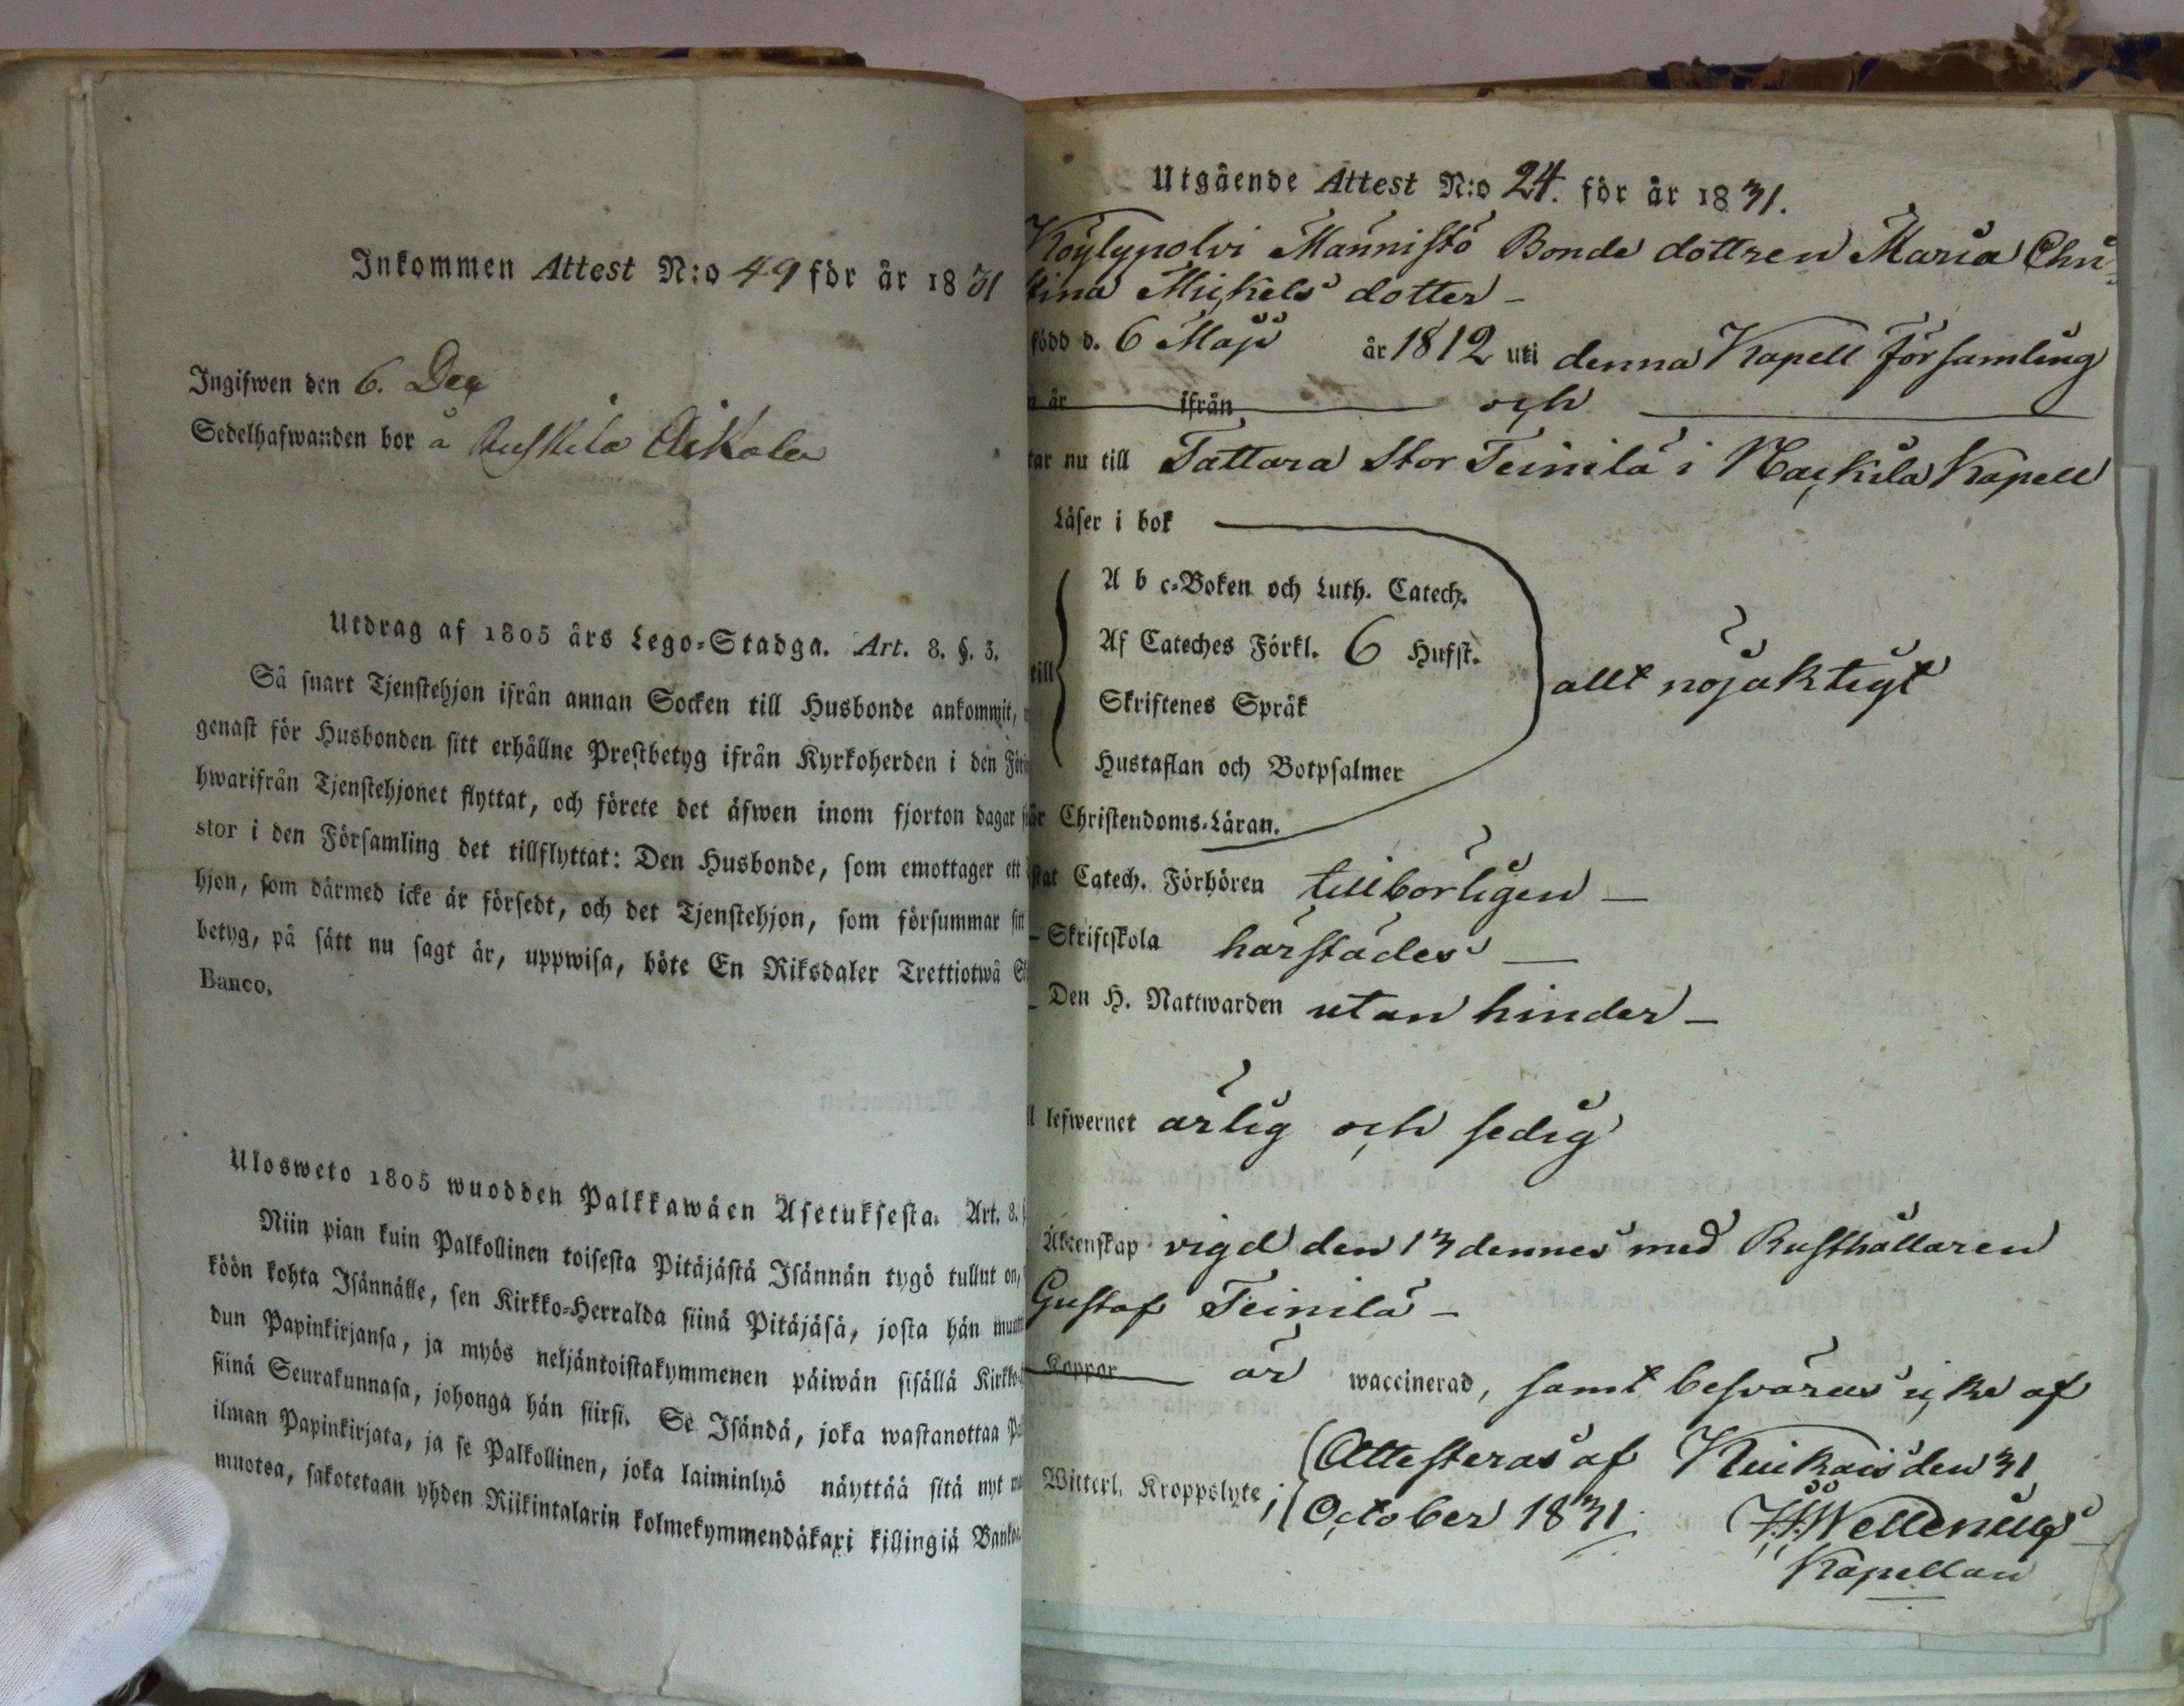 Inkommen Attest N:o 49 för år 1831
Ingifwen den 6. Dec
Sedelhafwanden bor å
Utdrag af 1805 års Lego-Stadga. Art. 8. §. 3.
Så snart Tjenstehjon ifrån annan Socken till Husbonde ankommit,
genast för Husbonden sitt erhållne Prestbetyg ifrån Kyrkoherden i den
hwarifrån Tjenstehjonet flyttat, och förete det äfwen inom fjorton dagar
stor i den Församling det tillflyttat: Den Husbonde, som emottager ett
hjon, som därmed icke är försedt, och det Tjenstehjon, som försummar sitt
betyg, på sätt nu sagt är, uppwisa, böte En Riksdaler Trettiotwå
Banco.
Ulosweto 1805 wuodden Palkkawäen Asetuksesta. Art. 8.
Niin pian kuin Palkollinen toisesta Pitäjästä Isännän tygö tullut on,
köön kohta Isännälle, sen Kirkko-Herralda siinä Pitäjäsä, josta hän
dun Papinkirjansa, ja myös neljäntoistakymmenen päiwän sisällä
siinä Seurakunnasa, johonga hän siirsi. Se Isändä, joka wastanottaa
ilman Papinkirjata, ja se Palkollinen, joka laiminlyö näyttää sitä nyt
muotoa, sakotetaan yhden Riikintalarin kolmekymmendäkaxi killingiä
Utgående Attest N:o 24. för år 1831.
Köylypolvi Männistö Bonde dottren Maria Chri-
stina Mickels dotter –
född d. 6 Maji år 1812 uti denna Kapell Församling
år ifrån och
tar nu till Tattara Stor Teinilä i Nackila Kapell
Läser i bok
A b c-Boken och Luth. Catech.
Af Cateches Förkl. 6 Hufst.
till
Skriftenes Språk
allt nöjaktigt
Hustaflan och Botpsalmer
Christendoms-Läran.
Catech. Förhören tillbörligen –
– Skriftskola härstädes –
– Den H. Nattwarden utan hinder –
lefwernet ärlig och sedig
Äktenskap vigd den 13 dennes med Rusthållaren
Gustaf Teinilä –
Koppor är waccinerad, samt besväras icke af
Witterl. Kroppslyte; Attesteras af Kiukais den 31
October 1831.
Kapellan